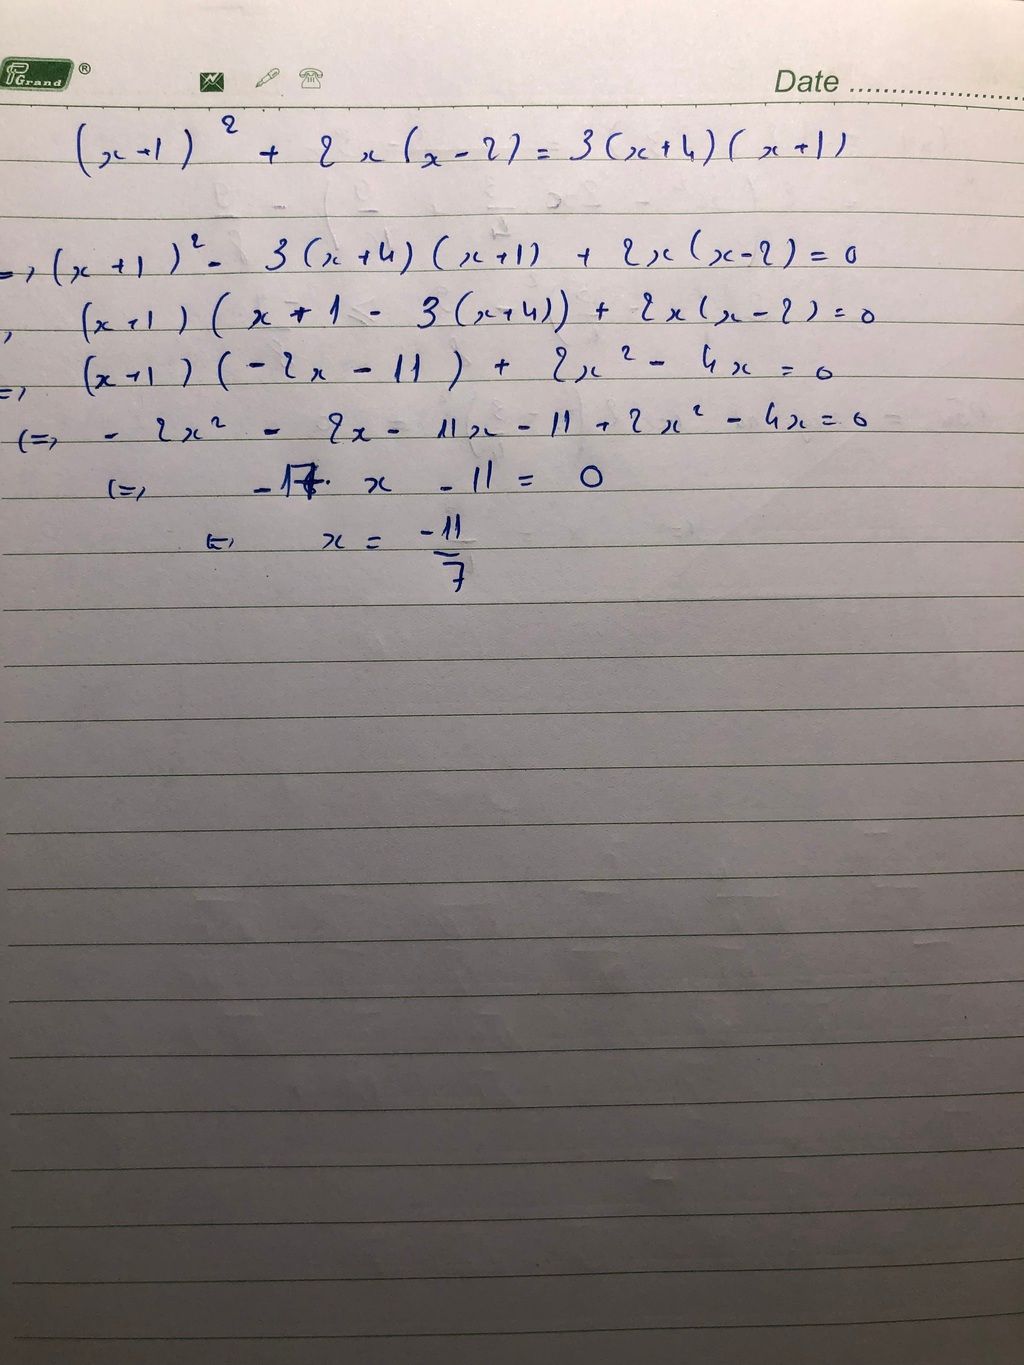 PGrand ® Date ........................
(x+1)² + 2x(x-2) = 3(x+4)(x+1)
=> (x+1)² - 3(x+4)(x+1) + 2x(x-2) = 0
, (x+1)(x+1 - 3(x+4)) + 2x(x-2) = 0
=> (x+1)(-2x-11) + 2x² - 4x = 0
<=> - 2x² - 2x - 11x - 11 + 2x² - 4x = 0
<=> -17x - 11 = 0
<=> x = -11/7